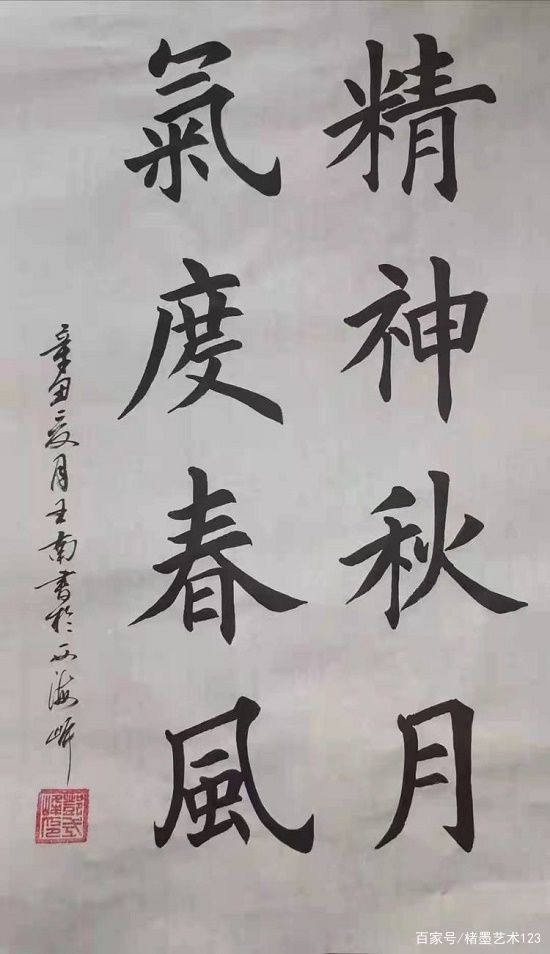 精神秋月
氣度春風
辛丑夏月王南書於西海岸
百家号/楮墨艺术123